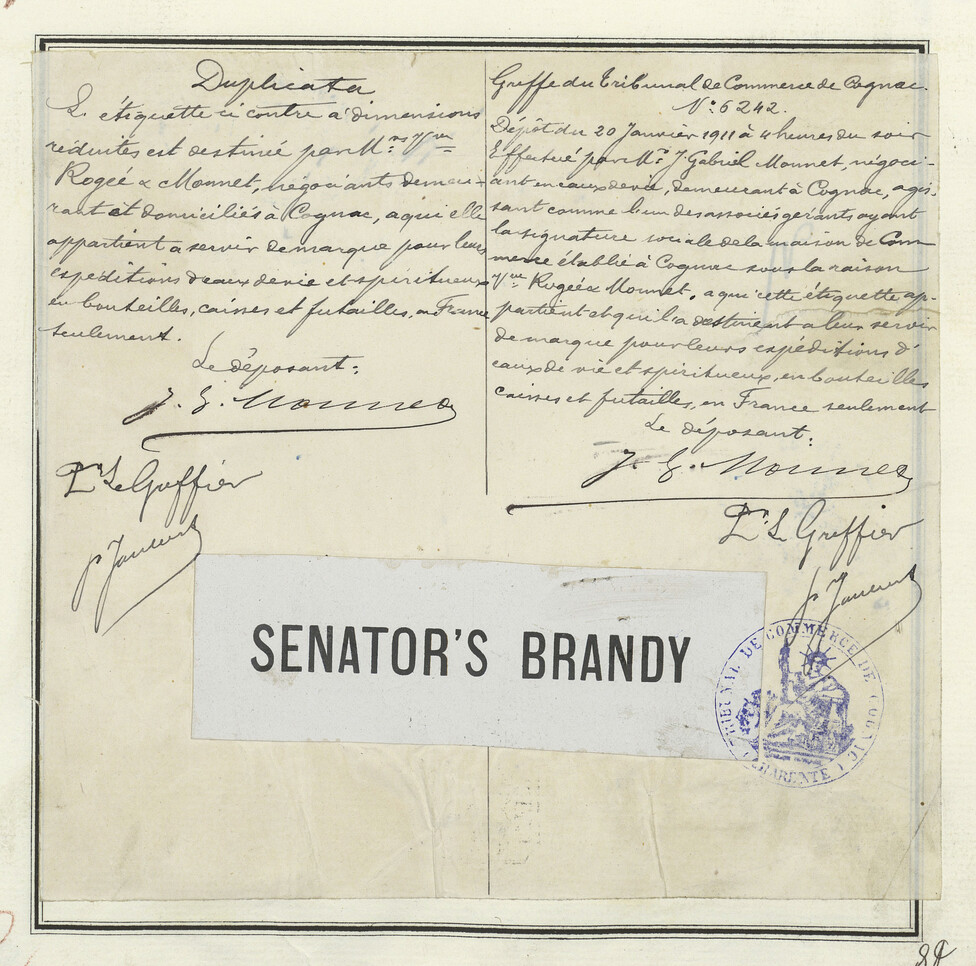 Duplicata
L' étiquette ci contre à dimensions
réduites est destinée par M.rs Vve
Rogée & Monnet, négociants demeu-
rant et domiciliés à Cognac, à qui elle
appartient a servir de marque pour leurs
expéditions d'eaux de vie et spiritueux
en bouteilles, caisses et futailles, en France
seulement.
Le déposant:
J. G. Monnet
Pr Le Greffier
Greffe du Tribunal de Commerce de Cognac.
N° 6242.
Dépôt du 20 Janvier 1911 à 4 heures du soir
Effectué par Mr J. Gabriel Monnet, négoci-
ant en eaux de vie, demeurant à Cognac, agis-
sant comme l'un des associés gérants ayant
la signature sociale de la maison de Com
merce établie à Cognac sous la raison
Vve Rogée & Monnet, a qui cette étiquette ap-
partient et qui l'a destinent a leur servir
de marque pour leurs expéditions d'
eaux de vie et spiritueux, en bouteilles
caisses et futailles, en France seulement
Le déposant:
J. G. Monnet
Pr L Greffier
SENATOR'S BRANDY
TRIBUNAL DE COMMERCE DE COGNAC
CHARENTE